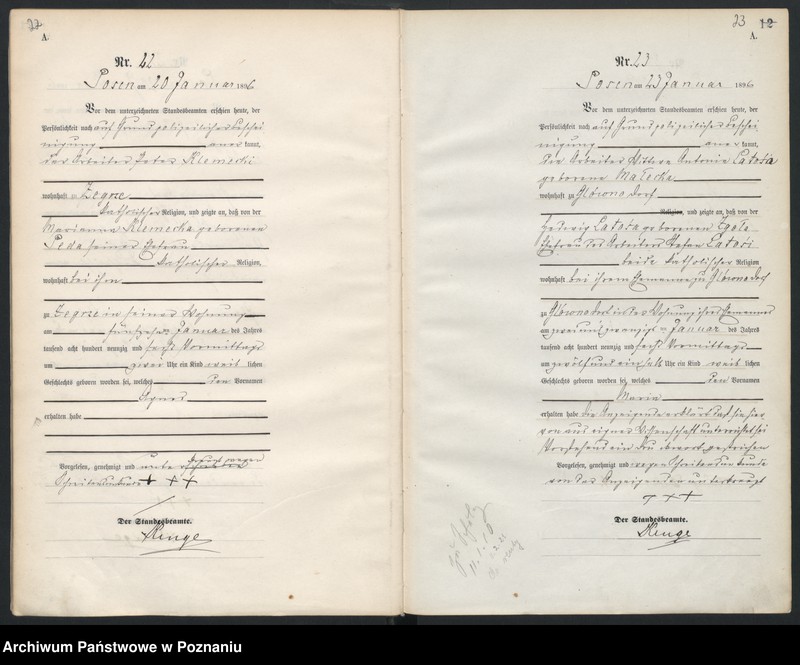 22
A.
Nr. 22
Posen am 20 Januar 1896
Vor dem unterzeichneten Standesbeamten erschien heute, der
Persönlichkeit nach auf Grund polizeilicher Beschei
nigung aner kannt,
der Arbeiter Peter Klemecki
wohnhaft zu Zegrze
katholischer Religion, und zeigte an, daß von der
Marianna Klemecka geborenen
seiner Ehefrau
katholischer Religion,
wohnhaft bei ihm
zu Zegrze in seiner Wohnung
am fünfzehnten Januar des Jahres
tausend acht hundert neunzig und sechs Vormittags
um zwei Uhr ein Kind weib lichen
Geschlechts geboren worden sei, welches den Vornamen
Agnes
erhalten habe
Vorgelesen, genehmigt und wegen
Schreibunkunde + + +
Der Standesbeamte.
23 12
A.
Nr. 23
Posen am 23 Januar 1896
Vor dem unterzeichneten Standesbeamten erschien heute, der
Persönlichkeit nach auf Grund polizeilicher Beschei
nigung aner kannt,
die Arbeiter Wittwe Antonie Latośa
geborene Małecka
wohnhaft zu Głowno Dorf
Religion, und zeigte an, daß von der
Hedwig Latośa geborenen
Ehefrau des Arbeiters Stefan
beide katholischer Religion
wohnhaft bei ihrem Ehemanne zu Głowno Dorf
zu Głowno Dorf in der Wohnung ihres Ehemannes
am zweiundzwanzigsten Januar des Jahres
tausend acht hundert neunzig und sechs Vormittags
um zwölf und ein halb Uhr ein Kind weib lichen
Geschlechts geboren worden sei, welches den Vornamen
Maria
erhalten habe Die Anzeigende erklärt, daß sie hier
von aus eigener Wissenschaft unterrichtet sei
Vorstehend ein Druckwort gestrichen
Vorgelesen, genehmigt und wegen Schreibunkunde
von der Anzeigenden unterkreuzt
+ + +
Der Standesbeamte.
Archiwum Państwowe w Poznaniu